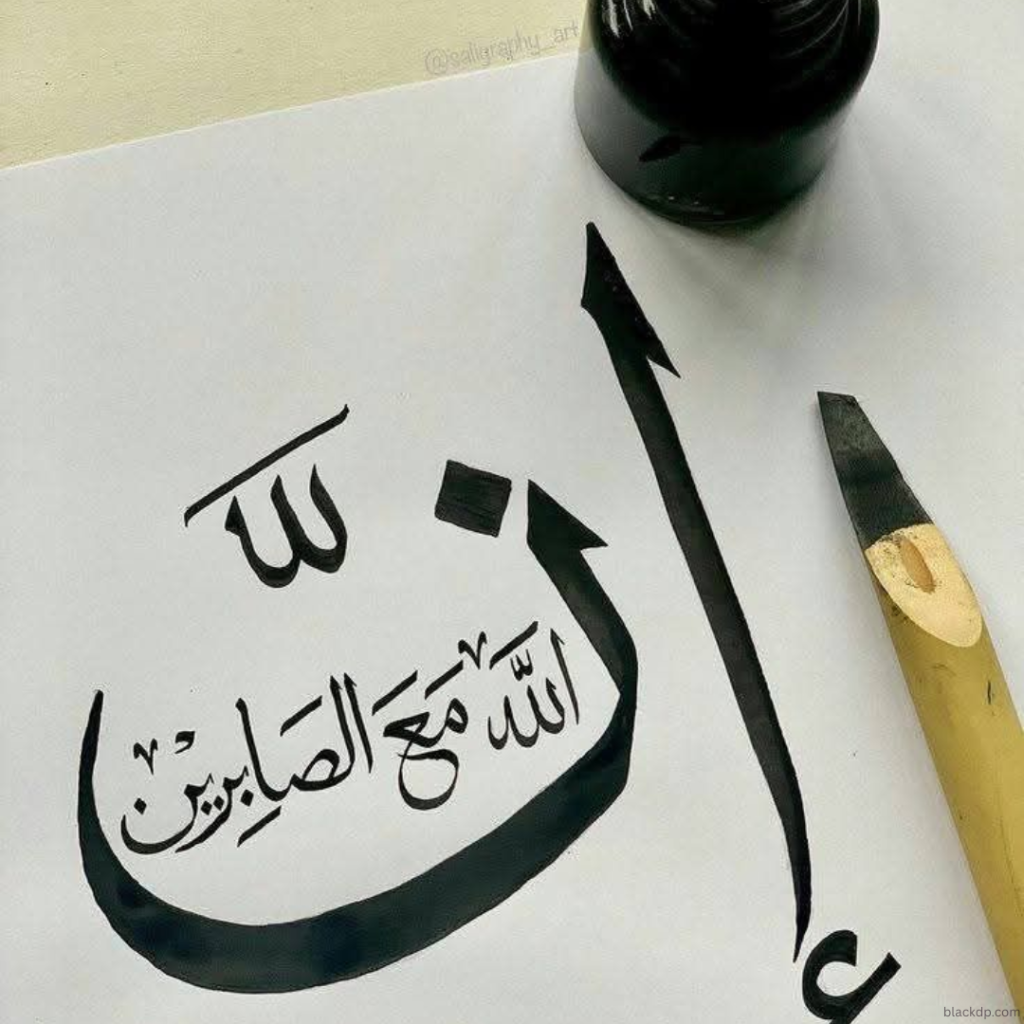 @saligraphy_art
إنَّ
اللَّه مَعَ الصَابِرين
blackdp.com